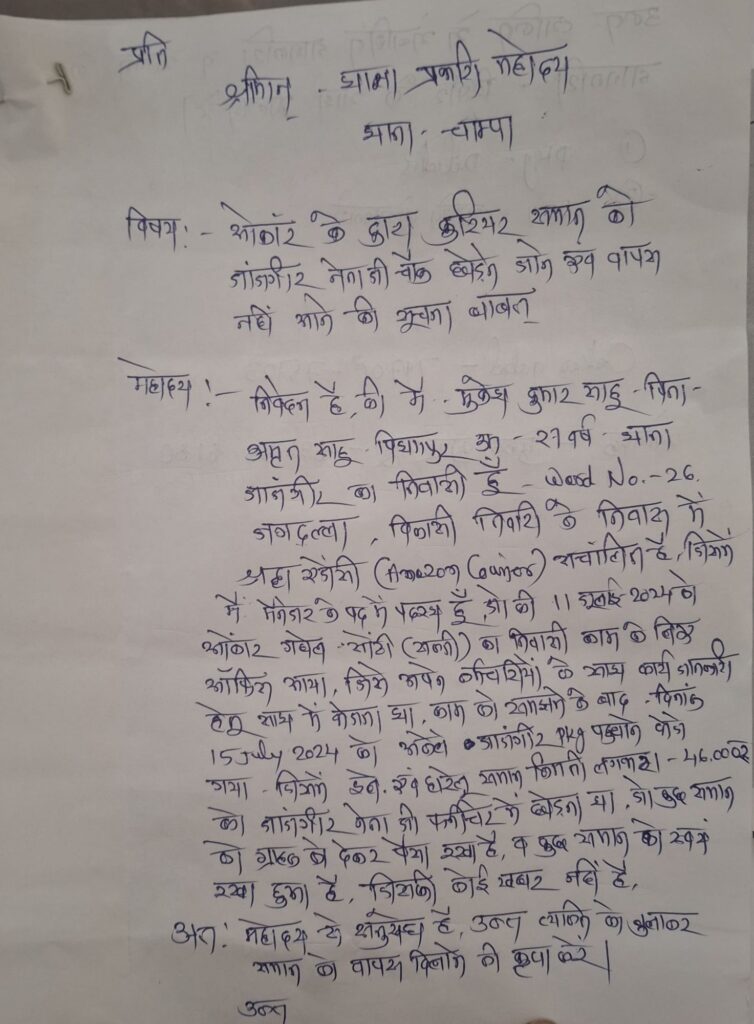 प्रति
श्रीमान् . थाना प्रभारी महोदय
थाना - चाम्पा
विषय :- ओकार के द्वारा कुरियर समान को
जांजगीर नेताजी चौक छोड़ने जाने एवं वापस
नहीं आने की सूचना बाबत्
महोदय :- निवेदन है, की मै . मुकेश कुमार साहू - पिता -
साहू उम्र - 27 वर्ष - थाना
जांजगीर का निवासी हूँ - Word No. - 26.
जगदल्ला , निवास में
(Amazon संचालित है, जिसमें
मैं मैनेजर के पद में पदस्थ हूँ, जो की 11 जुलाई 2024 को
ओंकार (सक्ती) का निवासी काम के लिए
ऑफिस आया, जिसे अपने कर्मचारियों के साथ कार्य जानकारी
हेतु साथ में भेजना था, काम को समझने के बाद - दिनांक
15 July 2024 को अकेले जांजगीर Pkg
गया - जिसमें समान किमती लगभग - 46.000रु
को जांजगीर नेता जी में छोड़ना था, जो कुछ समान
को ग्राहक को देकर पैसा रखा है, व कुछ समान को स्वयं
रखा हुआ है, जिसकी कोई खबर नहीं है,
अत: महोदय से अनुरोध है, उक्त व्यक्ति को बुलाकर
समान को वापस दिलाने की कृपा करें।
उक्त